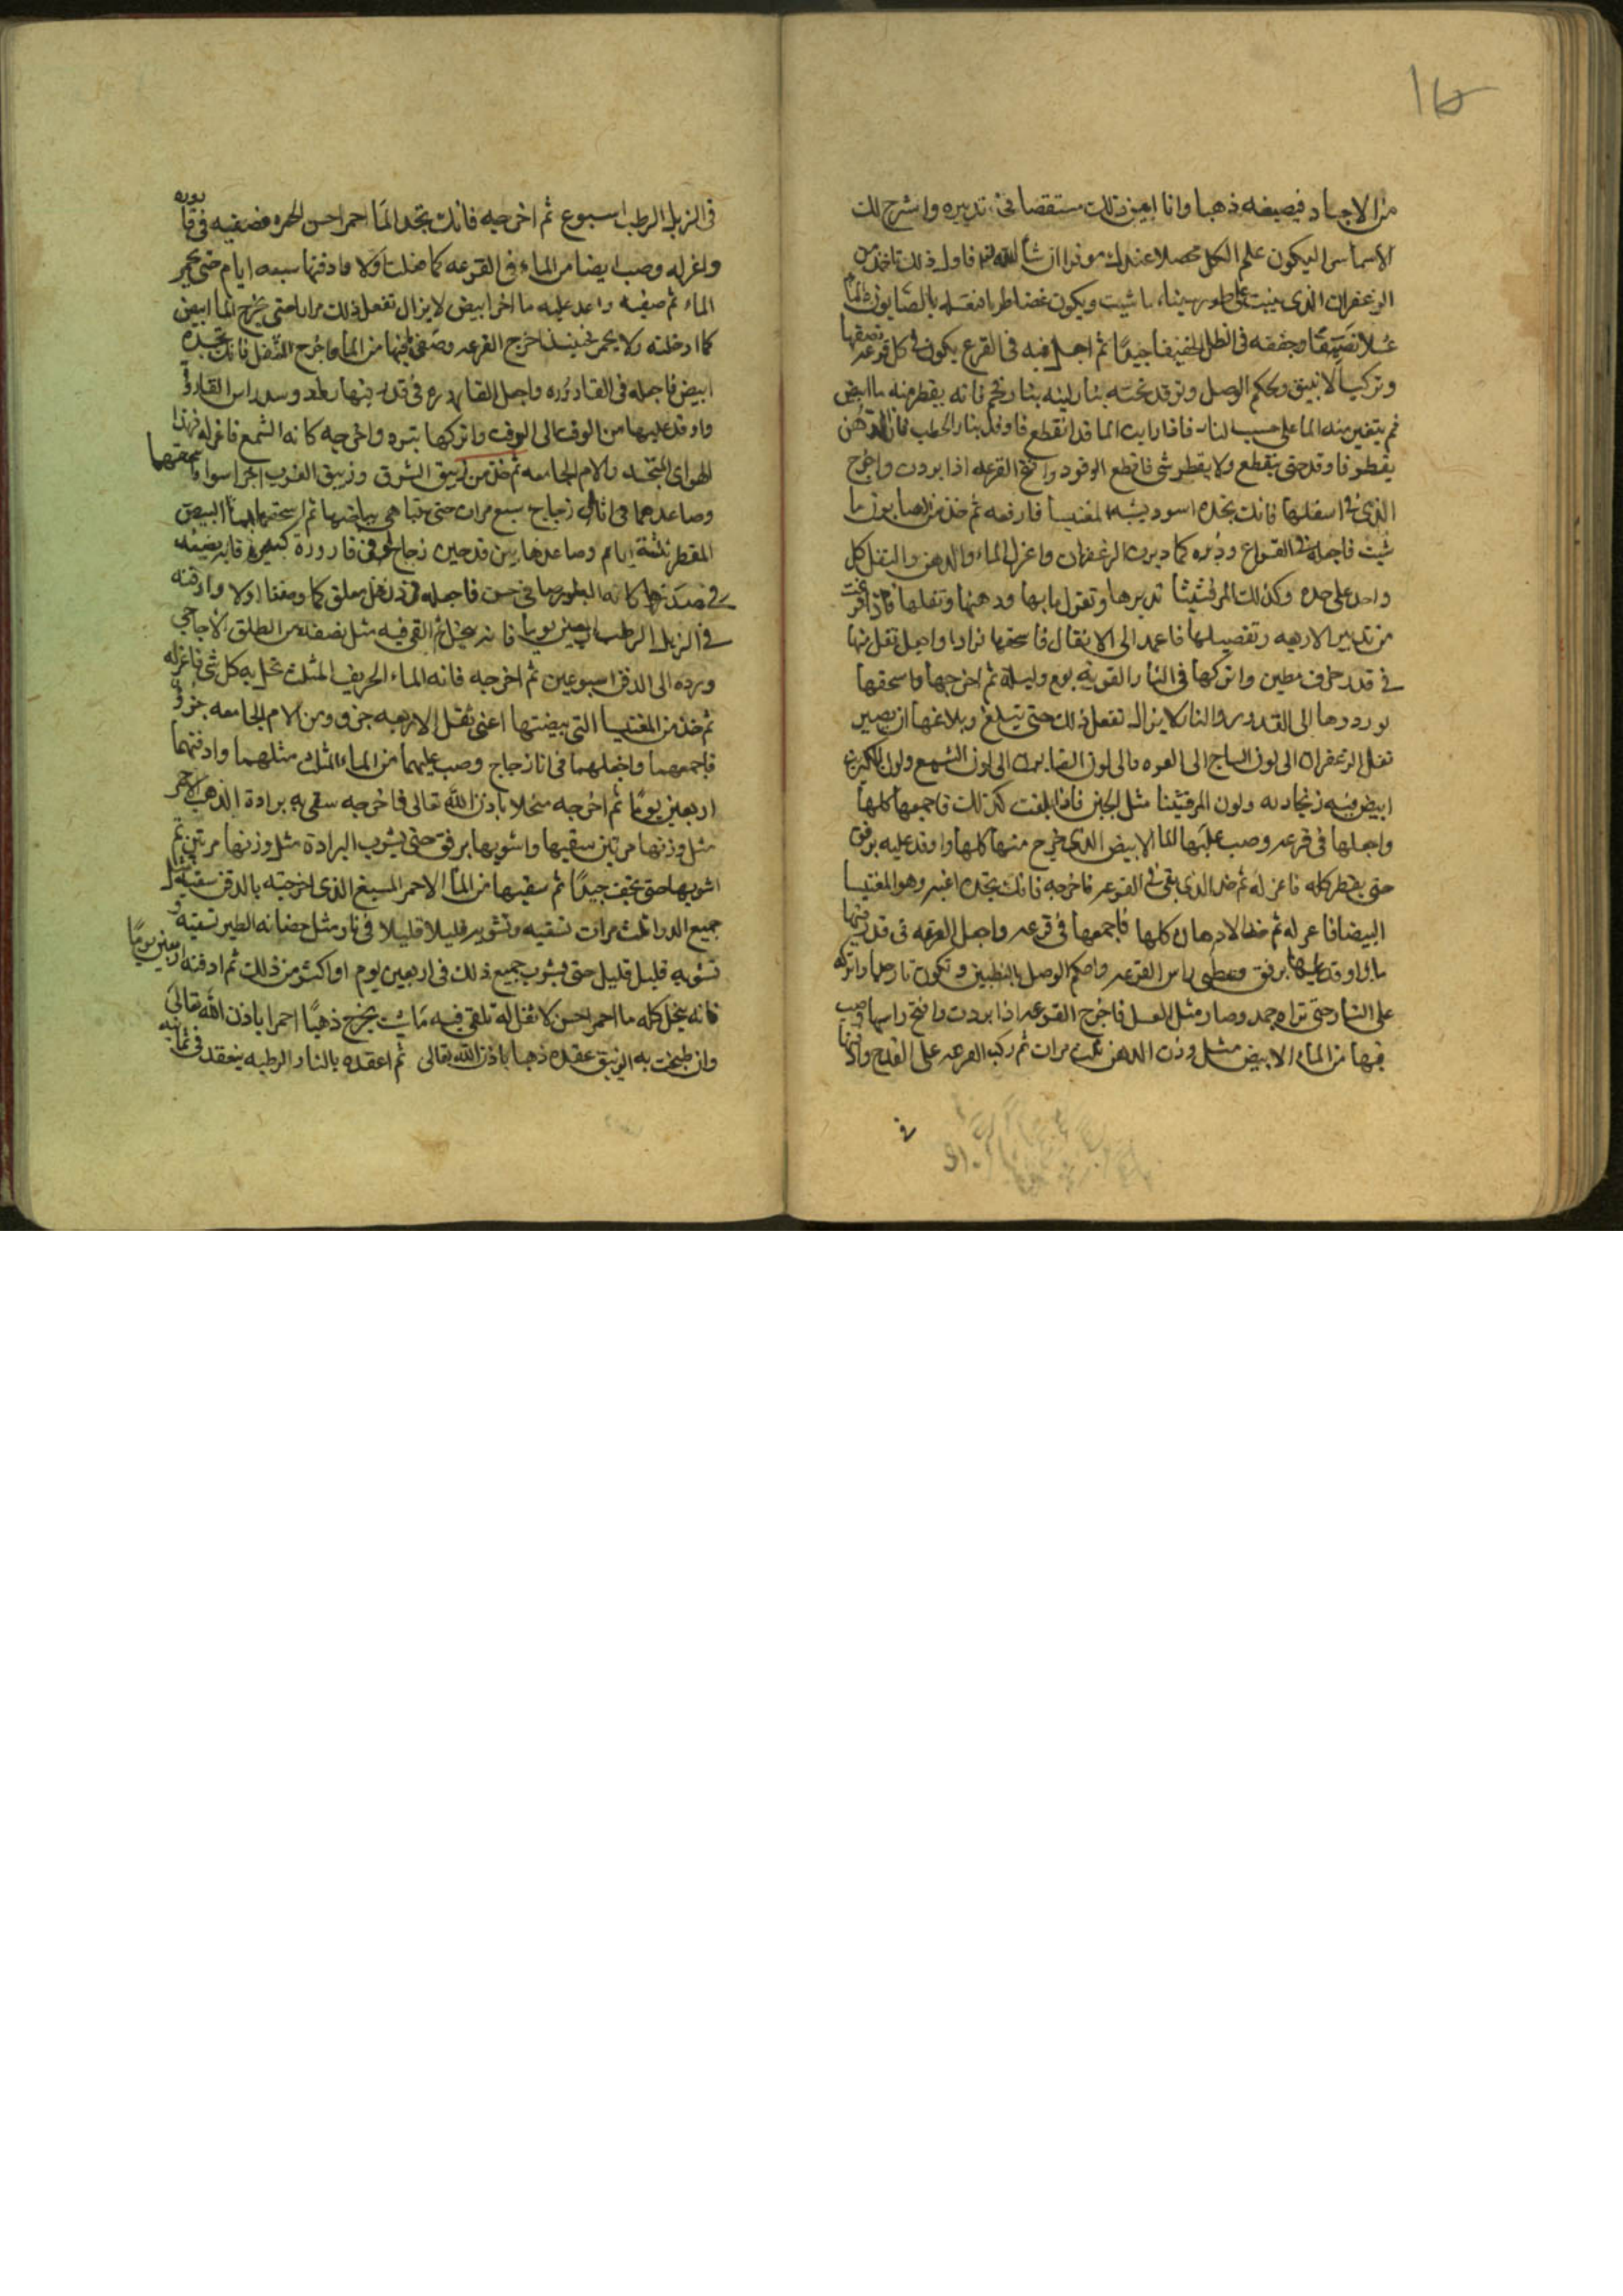 من الاجساد فيصبغه ذهبا وانا ابين ذلك مستقصا في تدبيره واشرح لك
الاسماس ليكون علم الكل محصلا عندك موفرا ان شا الله فاول ذلك تاخذ من
الزعفران الذى ينبت على طور سينا ما شيت ويكون غضا طريا فتغسله بالصابون والما
غسلا نقيا وجففه فى الظل تجفيفا جيدا ثم اجعل منه فى القرع يكون فى كل قرعه نصفها
وتركب الانبيق وتحكم الوصل وتوقد تحته بنار لينه بنار فحم فانه يقطر منه ما ابيض
ثم يتغير منه الما على حسب النار فاذا رايت الما قد انقطع فاوقد بنار الحطب فان الدهن
يقطر فاوقد حتى ينقطع ولا يقطر شى فاقطع الوقود وافتح القرعه اذا بردت واخرج
الذى فى اسفلها فانك تجده اسود يشبه المغنيسا فارفعه ثم خذ من الصابون ما
شيت فاجعله فى القرع ودبره كما دبرت الزعفران واعزل الماء والدهن والثفل كل
واحد على حده وكذلك المرقشيثا تدبرها وتعزل ماءها ودهنها وثفلها فاذا فرغت
من تدبير الاربعه وتفصيلها فاعمد الى الاثقال فاسحقها فرادا واجعل ثفل منها
فى قدر خزف مطين واتركها فى النار القويه يوم وليلة ثم اخرجها واسحقها
وردها الى القدور والنار لا يزال تفعل ذلك حتى تبلغ وبلاغها ان يصير
ثفل الزعفران الى لون الساج الى الحمره والى لون الصابون الى لون الشمع ولون الكبريت
ابيض فيه زنجاريه ولون المرقشيثا مثل الجبن فاذا بلغت كذلك فاجمعها كلها
واجعلها فى قرعه وصب عليها الما الابيض الذى خرج منها كلها واوقد عليه برفق
حتى يقطر كله فاعزله ثم خذ الذى بقى فى القرعه فاخرجه فانك تجده اغبر وهو المغنيسا
البيضا فاعزله ثم خذ الادهان كلها فاجمعها فى قرعه واجعل القرعه فى قدر فيها
ما واوقد عليها برفق وغطى راس القرعه واحكم الوصل بالتطيين وتكون نار حما واتركه
على النار حتى تراه جمد وصار مثل العسل فاخرج القرعه اذا بردت وافتح راسها وصب
فيها من الماء الابيض مثل وزن الدهن ثلث مرات ثم ركب القرعه على القدح وادفنها
فى
فى الزبل الرطب اسبوع ثم اخرجه فانك تجد الما احمر احسن الحمره فصفيه فى قاروره
واعزله وصب ايضا من الماء فى القرعه كما فعلت اولا وادفنها سبعه ايام حتى يحمر
الماء ثم صفيه واعد عليه ما اخر ابيض لا يزال تفعل ذلك مرارا حتى يخرج الما ابيض
كما ادخلته ولا يحمر فحينئذ اخرج القرعه وصفى ما فيها من الما واخرج الثفل فانك تجده
ابيض فاجعله فى القاروره واجعل القاروره فى قدر فيها رماد وسد راس القاروره
واوقد عليها من الوقت الى الوقت واتركها تبرد واخرجه كانه الشمع فاعزله فهذا
الهواى المتجسد والام الجامعه ثم خذ من زيبق الشرق وزيبق الغرب اجزا سوا فاسحقهما
وصاعدهما فى اثال زجاج سبع مرات حتى تتباهى بياضها ثم اسحقها بالما البيض
المقطر ثلثة ايام وصاعدها بين قدحين زجاج او فى قاروره كبيره فانه يصعد
فى صدرها كانه البلور صافى حسن فاجعله فى دن خل معلق كما وصفنا اولا وادفنه
فى الزبل الرطب اربعين يوما فانه ينحل ثم القى فيه مثل نصفه من الطلق الاجاجى
ورده الى الدفن اسبوعين ثم اخرجه فانه الماء الحريف المثلث تحل به كل شى فاعزله
ثم خذ من المغنيسا التى بيضتها اعنى ثفل الاربعه جزو ومن الام الجامعه جزو
فاجمعهما واجعلهما فى انا زجاج وصب عليهما من الماء المثلث مثلهما وادفنهما
اربعين يوما ثم اخرجه منحلا باذن الله تعالى فاخرجه سقى به برادة الذهب الاحمر
مثل وزنها مرتين سقيها واشويها برفق حتى يشرب البرادة مثل وزنها مرتين ثم
اشويها حتى تجف جيدا ثم سقيها من الما الاحمر المسبغ الذى اخرجته بالدفن سقيه مثل
جميع الدرا ثلث مرات تسقيه وتشويه قليلا قليلا فى نار مثل حضانه الطير تسقيه و
تشويه قليل قليل حتى يشرب جميع ذلك فى اربعين يوم او اكثر من ذلك ثم ادفنه اربعين يوما
فانه ينحل كله ما احمر احسن لا ثفل له تلقى فيه ما شيت يخرج ذهبا احمرا باذن الله تعالى
وان طبخت به الزيبق عقده ذهبا باذن الله تعالى ثم اعقده بالنار الرطبه ينعقد فى ثمانيه